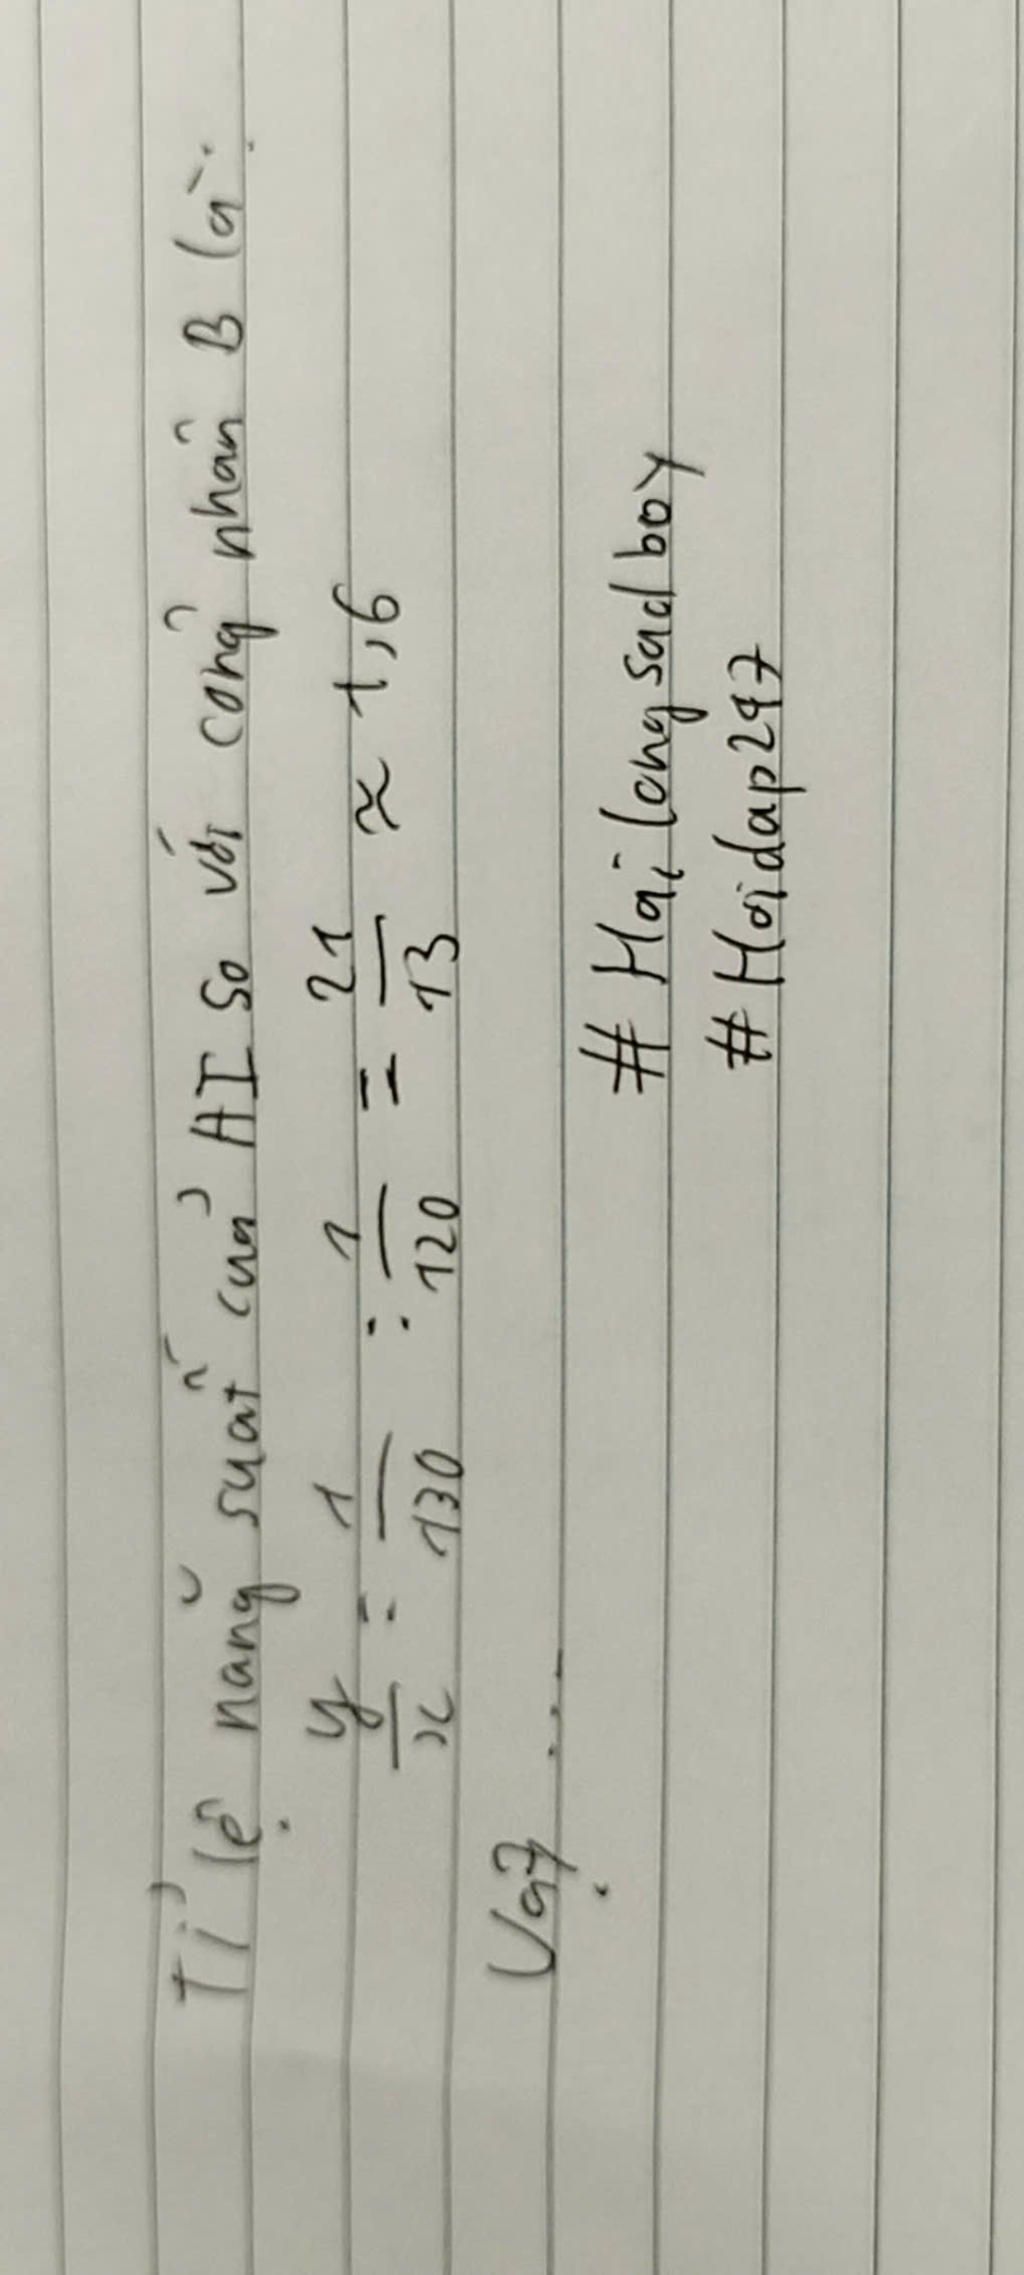 Tỉ lệ năng suất của AI so với công nhân B là:
y/x = 1/130 : 1/120 = 21/13 ≈ 1,6
Vậy ....
# Hailongsadboy
# Hoidap247